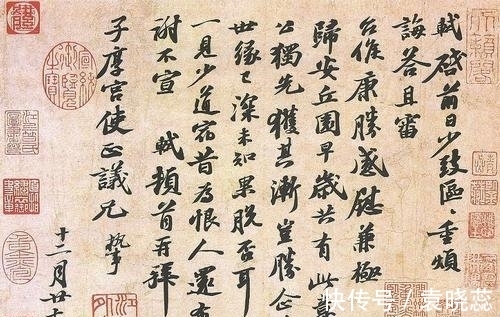 軾啓前日少致區〻重煩
誨荅且審
台候康勝感慰兼極
歸安丘園早歲共有此意
公獨先獲其漸豈勝企
世縁已深未知果脱否耳
一見少道宿昔為恨人還布
謝不宣 軾頓首再拜
子厚宮使正議兄 執事
十二月廿
快传号 / 袁晓蕊